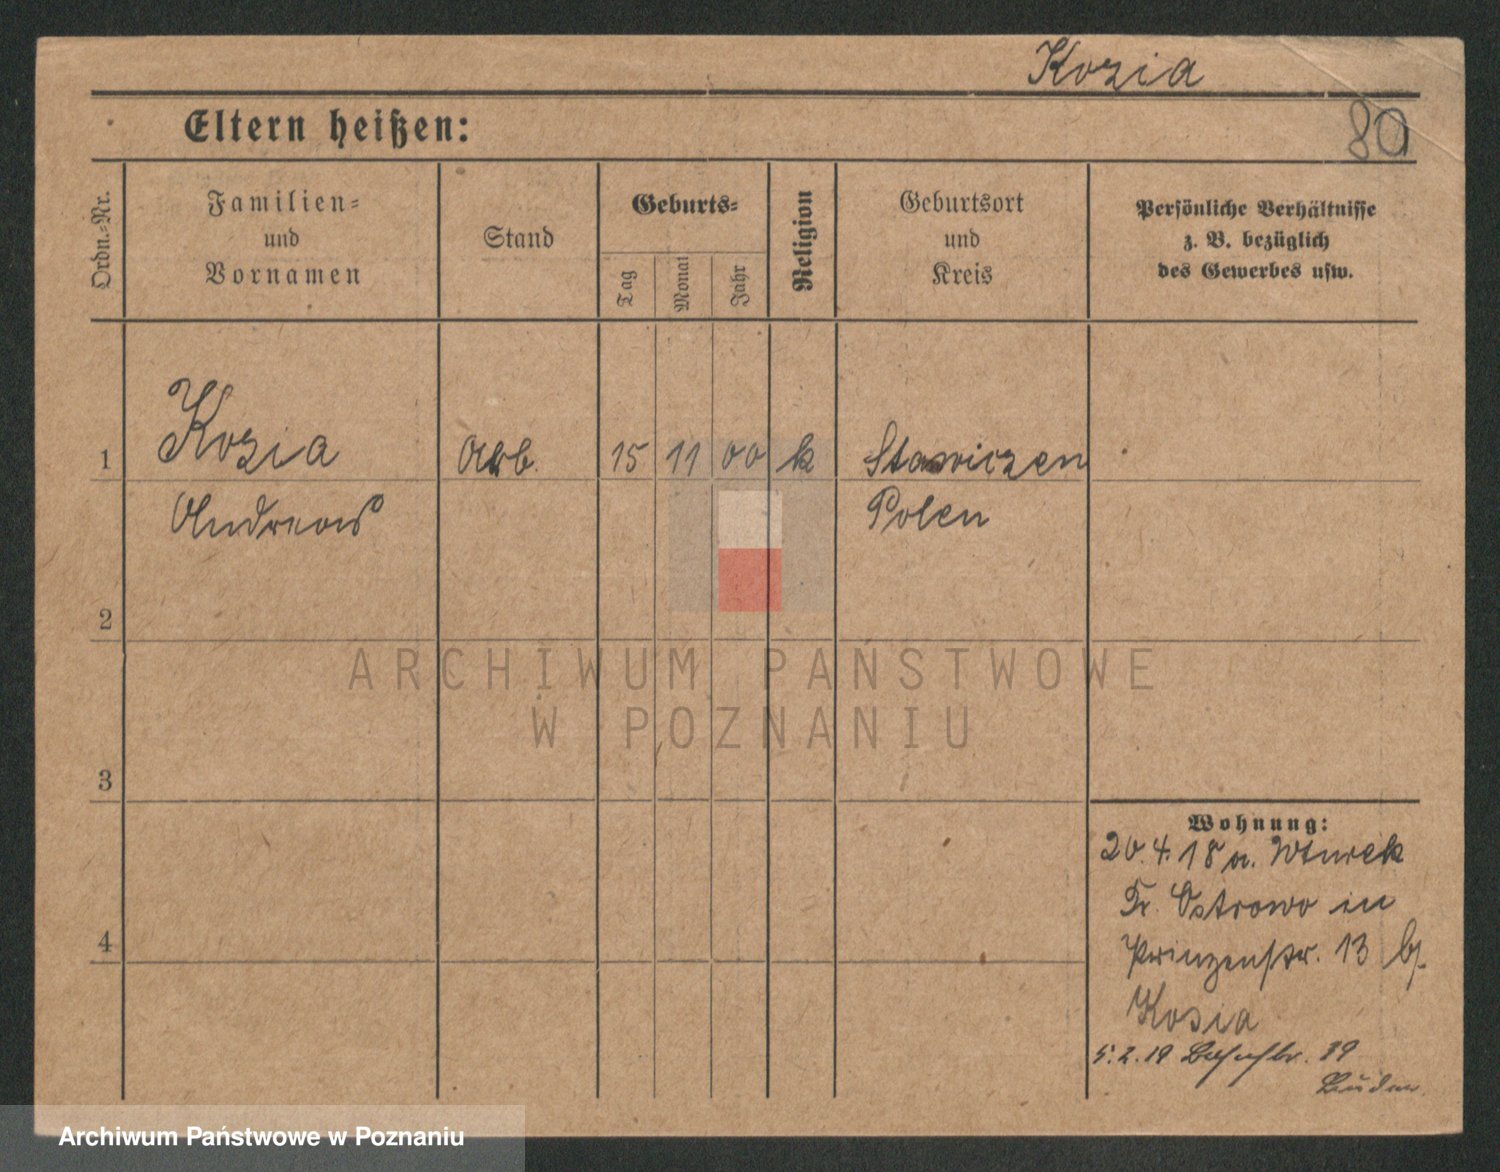 Kozia
Eltern heißen:
80
Ordn.-Nr.
Familien-
und
Vornamen
Stand
Geburts-
Tag
Monat
Jahr
Religion
Geburtsort
und
Kreis
Persönliche Verhältnisse
z. B. bezüglich
des Gewerbes usw.
1 Kozia Arb. 15 11 00 k Stawiczen
Andreas Polen
2
3
4
Wohnung:
20.4.18 a. Wturek
Kr. Ostrowo in
Prinzenstr. 13 bj.
Kozia
5.2.19 39
ARCHIWUM PAŃSTWOWE
W POZNANIU
Archiwum Państwowe w Poznaniu